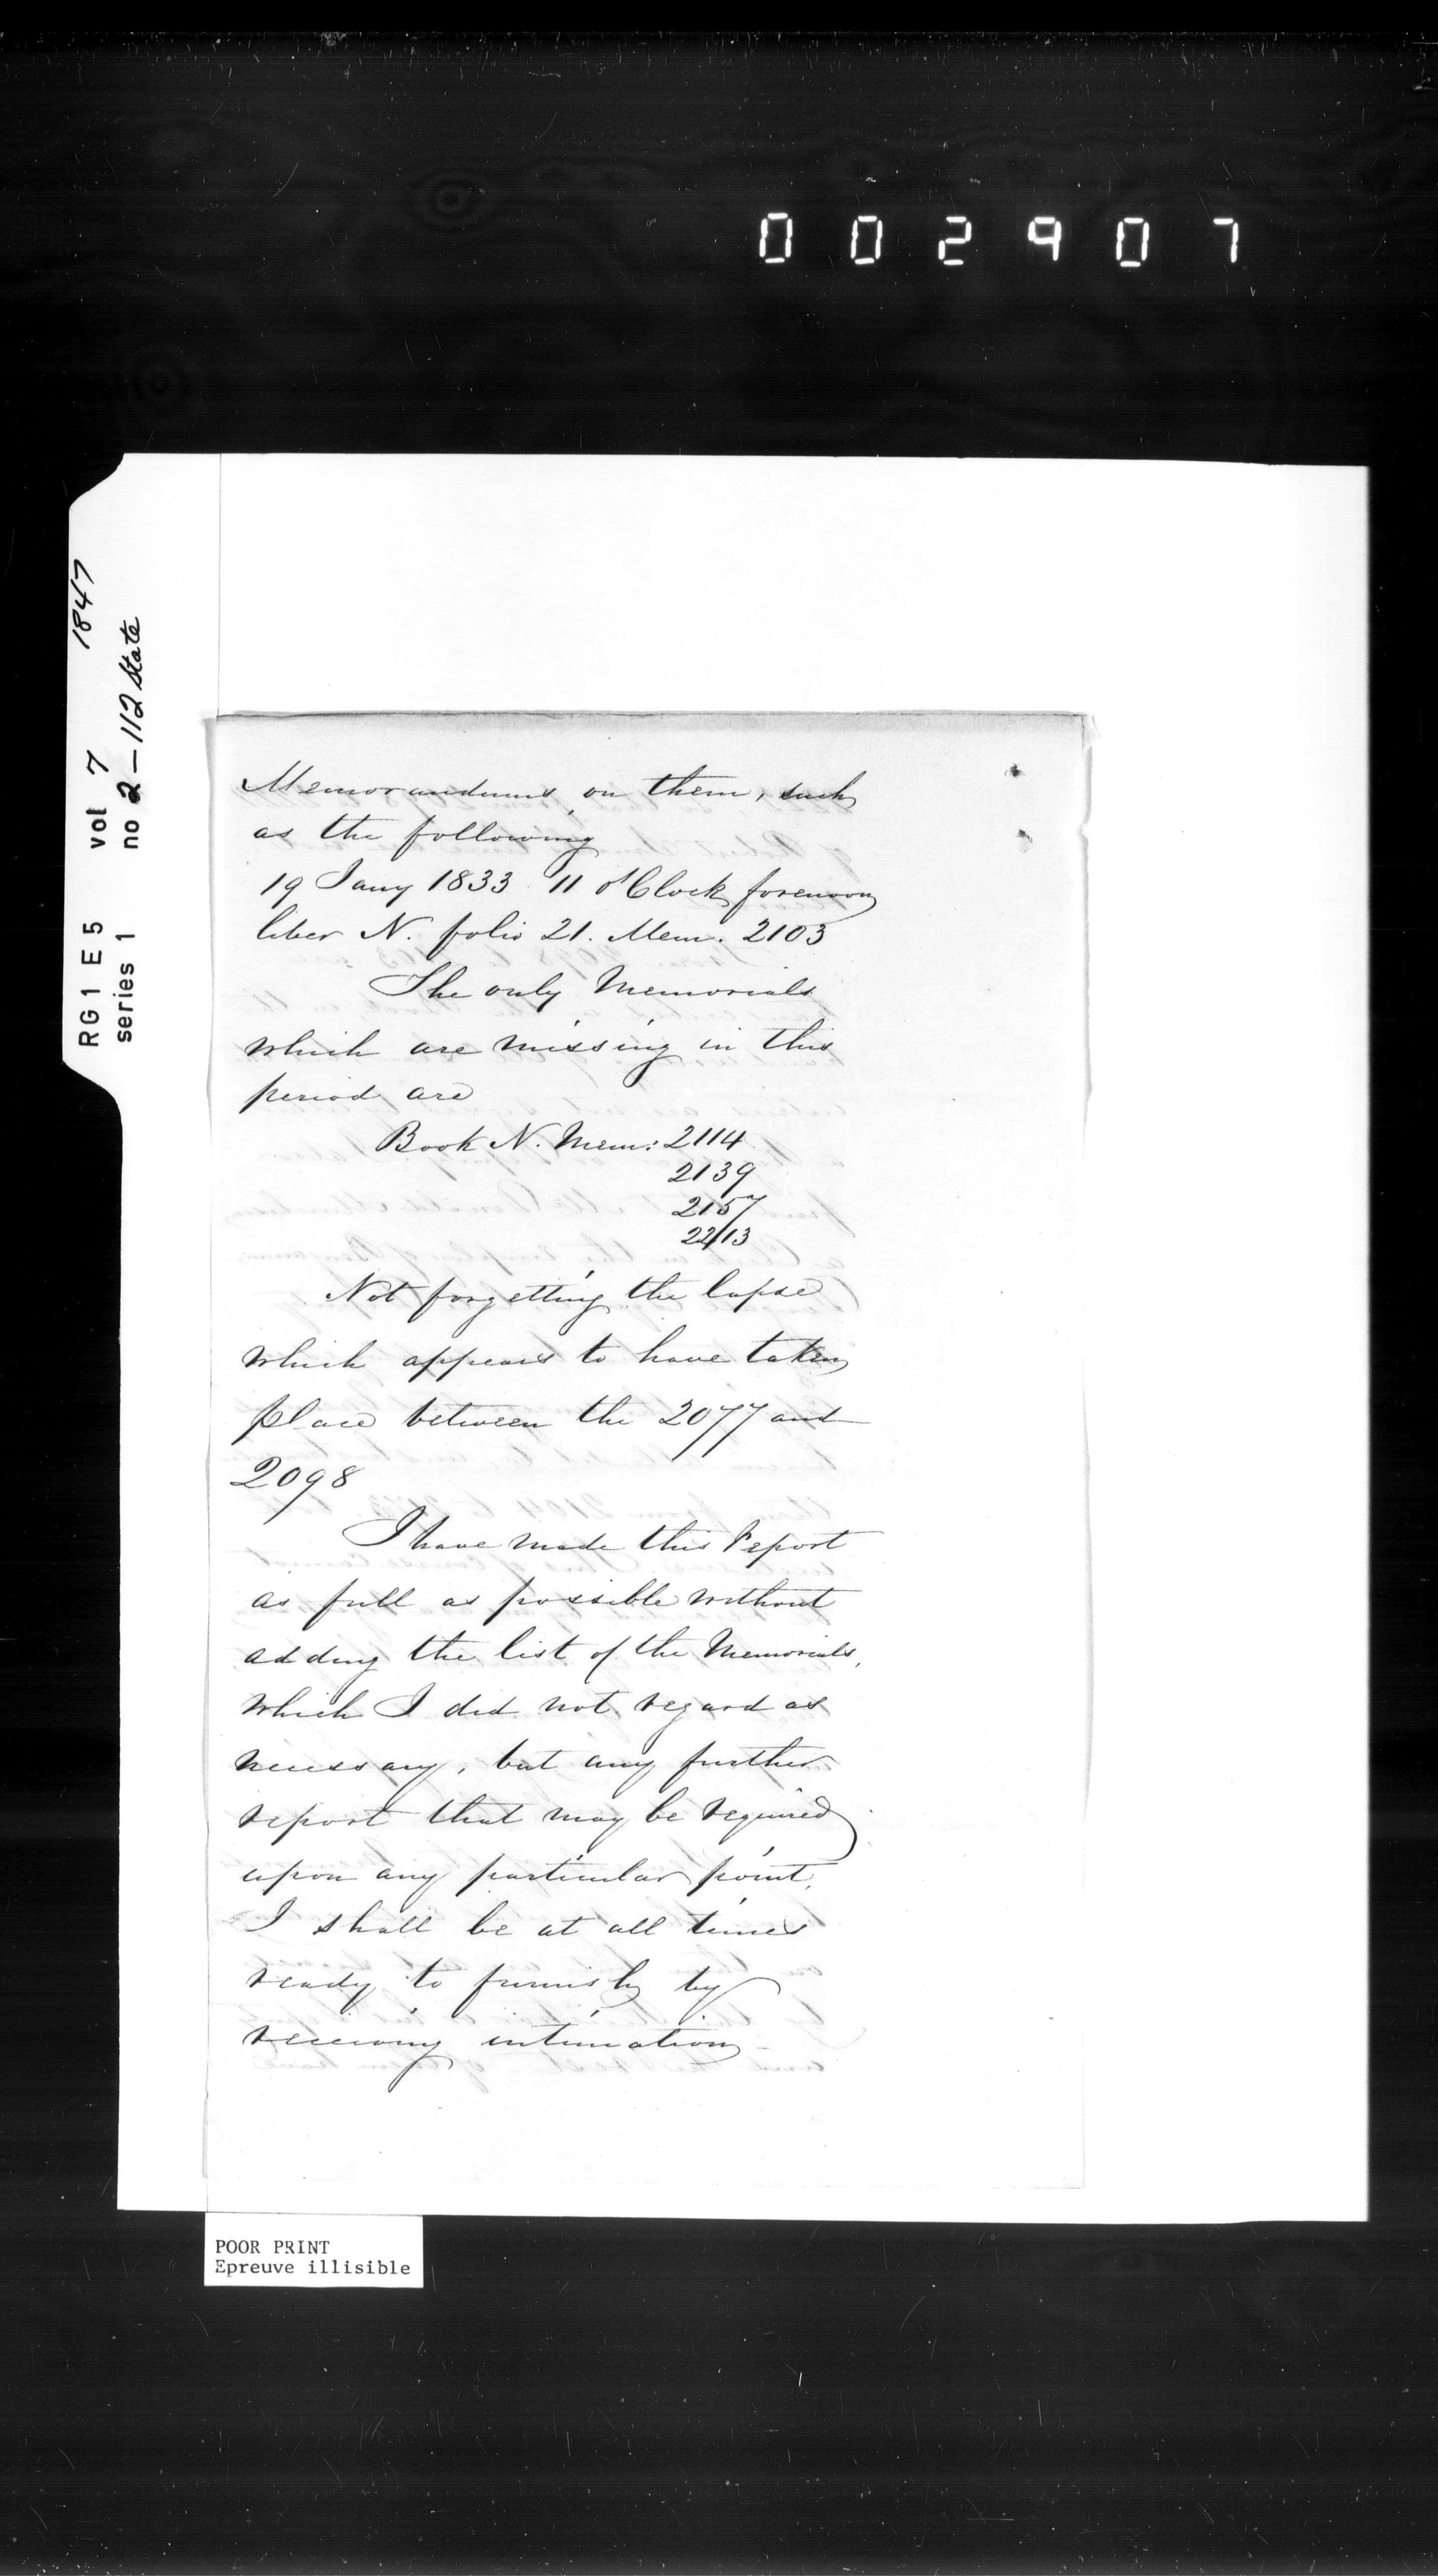 002907
RG1 E5 vol 7 1847
series 1 no 2-112 State
Memorandums on them, such
as the following
19 Jany 1833 11 o'Clock forenoon
liber N. folio 21. Mem. 2103
The only Memorials
which are missing in this
period are
Book N. Mem: 2114
2139
2157
2213
Not forgetting the lapse
which appears to have taken
place between the 2077 and
2098
I have made this Report
as full as possible without
adding the list of the Memorials,
which I did not regard as
necessary, but any further
report that may be required
upon any particular point,
I shall be at all times
ready to furnish by
receiving intimation
POOR PRINT
Epreuve illisible